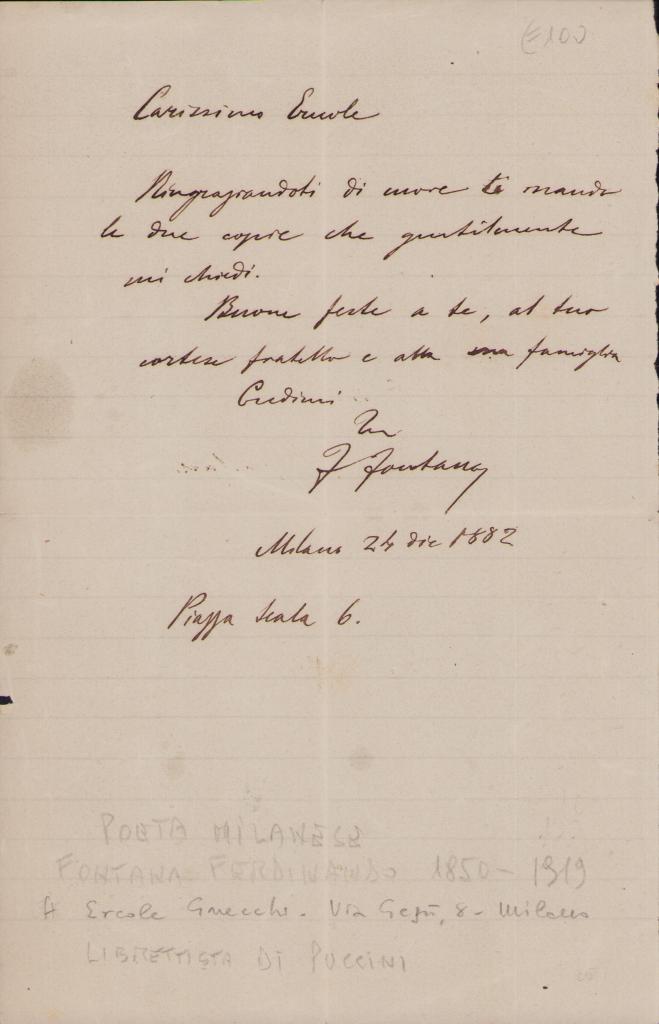 €100
Carissimo Ercole
Ringraziandoti di cuore te mando
le due copie che gentilmente
mi chiedi.
Buone feste a te, al tuo
cortese fratello e alla famiglia
Credimi
Tuo
F Fontana
Milano 24 dic 1882
Piazza Scala 6.
POETA MILANESE
FONTANA FERDINANDO 1850-1919
A Ercole Gnecchi. Via Gesù, 8 - Milano
LIBRETTISTA DI PUCCINI